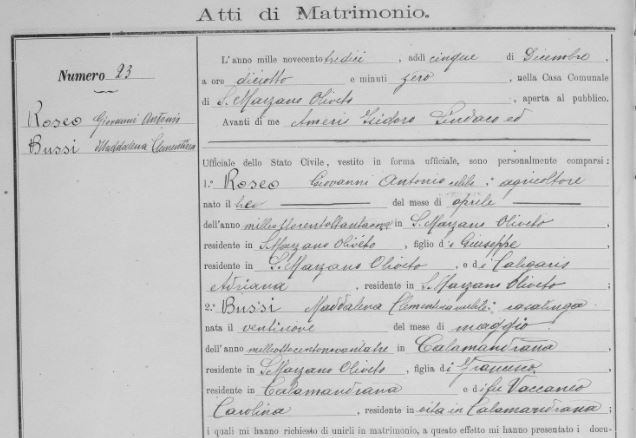 Atti di Matrimonio.
Numero 23
Roseo Giovanni Antonio
Bussi Maddalena Clementina
L'anno mille novecentotredici, addì cinque di Decembre,
a ore diciotto e minuti zero, nella Casa Comunale
di S. Marzano Oliveto, aperta al pubblico.
Avanti di me Ameris Isidoro Sindaco ed
Ufficiale dello Stato Civile, vestito in forma ufficiale, sono personalmente comparsi:
1.° Roseo Giovanni Antonio celibe; agricoltore
nato il tre del mese di aprile
dell'anno milleottocentottantanove in S. Marzano Oliveto
residente in S. Marzano Oliveto, figlio di Giuseppe
residente in S. Marzano Oliveto, e di Caligaris
Adriana, residente in S. Marzano Oliveto;
2.° Bussi Maddalena Clementina nubile; casalinga
nata il ventinove del mese di maggio
dell'anno milleottocentonovantatre in Calamandrana
residente in S. Marzano Oliveto, figlia di Francesco
residente in Calamandrana e di fu Vaccaneo
Carolina, residente in vita in Calamandrana;
i quali mi hanno richiesto di unirli in matrimonio, a questo effetto mi hanno presentato i docu-